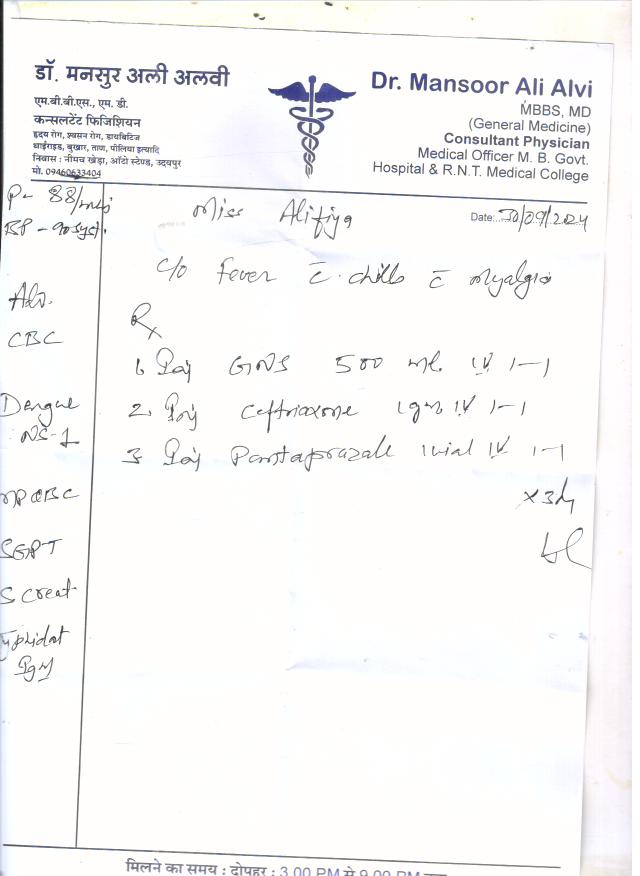 डॉ. मनसुर अली अलवी
एम.बी.बी.एस., एम. डी.
कन्सलटेंट फिजिशियन
हृदय रोग, श्वसन रोग, डायबिटिज
थाईराइड, बुखार, ताण, पीलिया इत्यादि
निवास : नीमच खेड़ा, ऑटो स्टेण्ड, उदयपुर
मो. 09460633404
Dr. Mansoor Ali Alvi
MBBS, MD
(General Medicine)
Consultant Physician
Medical Officer M. B. Govt.
Hospital & R.N.T. Medical College
P- 88/min
BP - 90 syst.
Miss Alifiya
Date: 30/09/2024
c/o Fever c chills c myalgia
Adv.
CBC
Dengue
NS-1
MP QBC
SGPT
S Creat
Typhidot
IgM
Rx
1. Inj GNS 500 ml. IV 1-1
2. Inj Ceftriaxone 1gm IV 1-1
3 Inj Pantaprazole 1 vial IV 1-1
x 3d
मिलने का समय : दोपहर : 3.00 PM से 9.00 PM तक